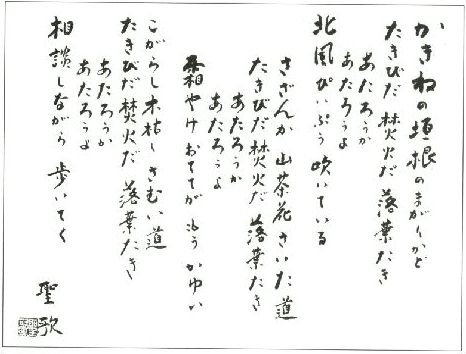 かきねの垣根のまがりかど
たきびだ焚火だ 落葉たき
あたろうか
あたろうよ
北風ぴいぷう 吹いている
さざんか 山茶花 さいた道
たきびだ焚火だ 落葉たき
あたろうか
あたろうよ
霜やけ おててが もう かゆい
こがらし木枯し さむい道
たきびだ焚火だ 落葉たき
あたろうか
あたろうよ
相談しながら 歩いてく
聖歌